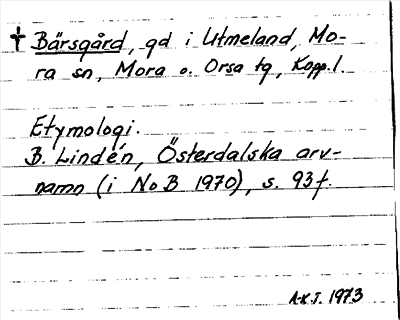 † Bärsgård, gd i Utmeland, Mo-
ra sn, Mora o. Orsa tg, Kopp. l.
Etymologi.
B. Lindén, Österdalska arv-
namn (i NoB 1970), s. 93 f.
A-K.J. 1973